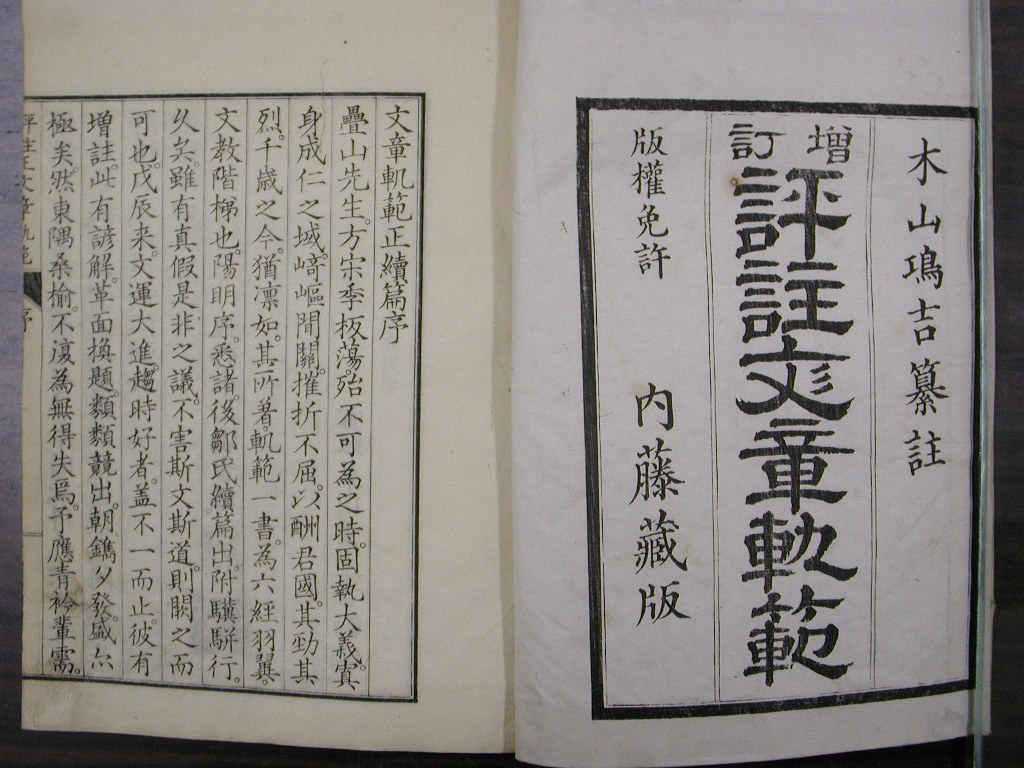 木山鴻吉纂註
增訂
評註文章軌範
版權免許
内藤藏版
文章軌範正續篇序
疊山先生。方宗季板蕩殆不可為之時。固執大義。寘
身成仁之域。﨑嶇間關。摧折不屈。以酬君國。其勁其
烈。千歳之今。猶凛如。其所著。軌範一書。為六經羽翼。
文教階梯也。陽明序。悉諸。後鄒氏續篇出。附驥駢行。
久矣。雖有真假是非之議。不害斯文斯道。則闕之而
可也。戊辰来。文運大進。趨時好者。蓋不一而止。彼有
增註。此有諺解。革面換題。類類競出。朝鐫夕發。盛亦
極矣。然東隅桑榆。不復為無得失焉。予應青衿輩需。